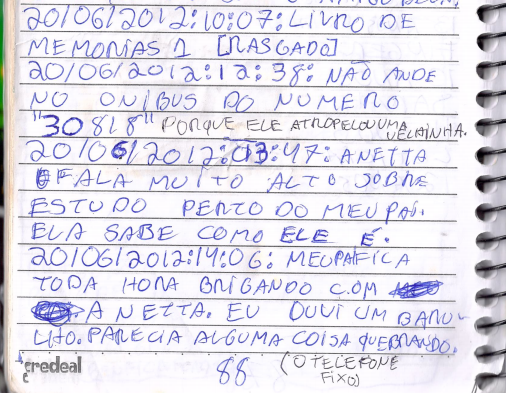 20/06/2012:10:07: LIVRO DE
MEMORIAS 1 [RASGADO]
20/06/2012:12:38: NÃO ANDE
NO ONIBUS DO NUMERO
"30818" PORQUE ELE ATROPELOU UMA VELHINHA.
20/06/2012:13:47: ANETTA
FALA MUITO ALTO SOBRE
ESTUDO PERTO DO MEU PAI.
ELA SABE COMO ELE É.
20/06/2012:14:06: MEU PAI FICA
TODA HORA BRIGANDO COM
A NETTA. EU OUVI UM BARU-
LHO. PARECIA ALGUMA COISA QUEBRANDO.
(O TELEFONE
FIXO)
credeal
88